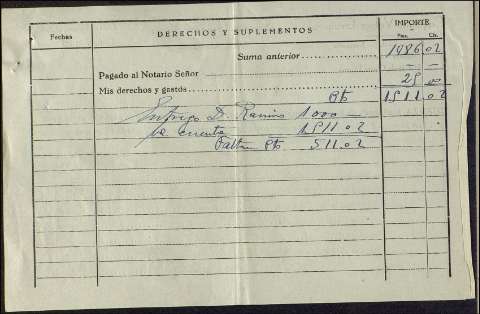 Fechas DERECHOS Y SUPLEMENTOS IMPORTE
Ptas. Cts.
Suma anterior 1486 02
Pagado al Notario Señor — —
Mis derechos y gastos 25 00
Pts 1511 02
Entrego D. Ramiro 1000 —
la cuenta — 1511.02
Faltan Pts 511.02